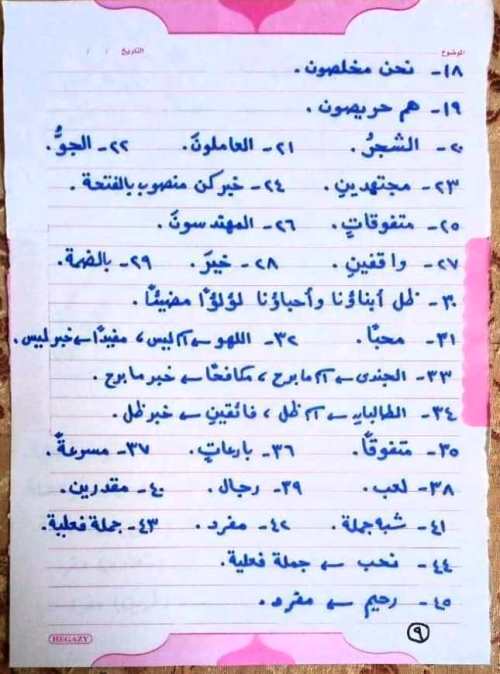 الموضوع التاريخ / /
١٨- نحن مخلصون.
١٩- هم حريصون.
٢٠- الشجرُ. ٢١- العاملونَ. ٢٢- الجوُّ.
٢٣- مجتهدينِ. ٢٤- خبر كن منصوب بالفتحة.
٢٥- متفوقاتٍ. ٢٦- المهندسونَ.
٢٧- واقفينِ. ٢٨- خيرَ. ٢٩- بالضمة.
٣٠- ظل أبناؤنا وأحباؤنا لؤلؤًا مضيئًا.
٣١- محبًا. ٣٢- اللهو ← اسم ليس، مفيدًا ← خبر ليس.
٣٣- الجندى ← اسم مابرح، مكافحًا ← خبر مابرح.
٣٤- الطالبانِ ← اسم ظل، فائقينِ ← خبر ظل.
٣٥- متفوقًا. ٣٦- بارعاتٍ. ٣٧- مسرعةً.
٣٨- لعب. ٣٩- رجال. ٤٠- مقدرين.
٤١- شبه جملة. ٤٢- مفرد. ٤٣- جملة فعلية.
٤٤- نحب ← جملة فعلية.
٤٥- رحيم ← مفرد.
٩
HEGAZY